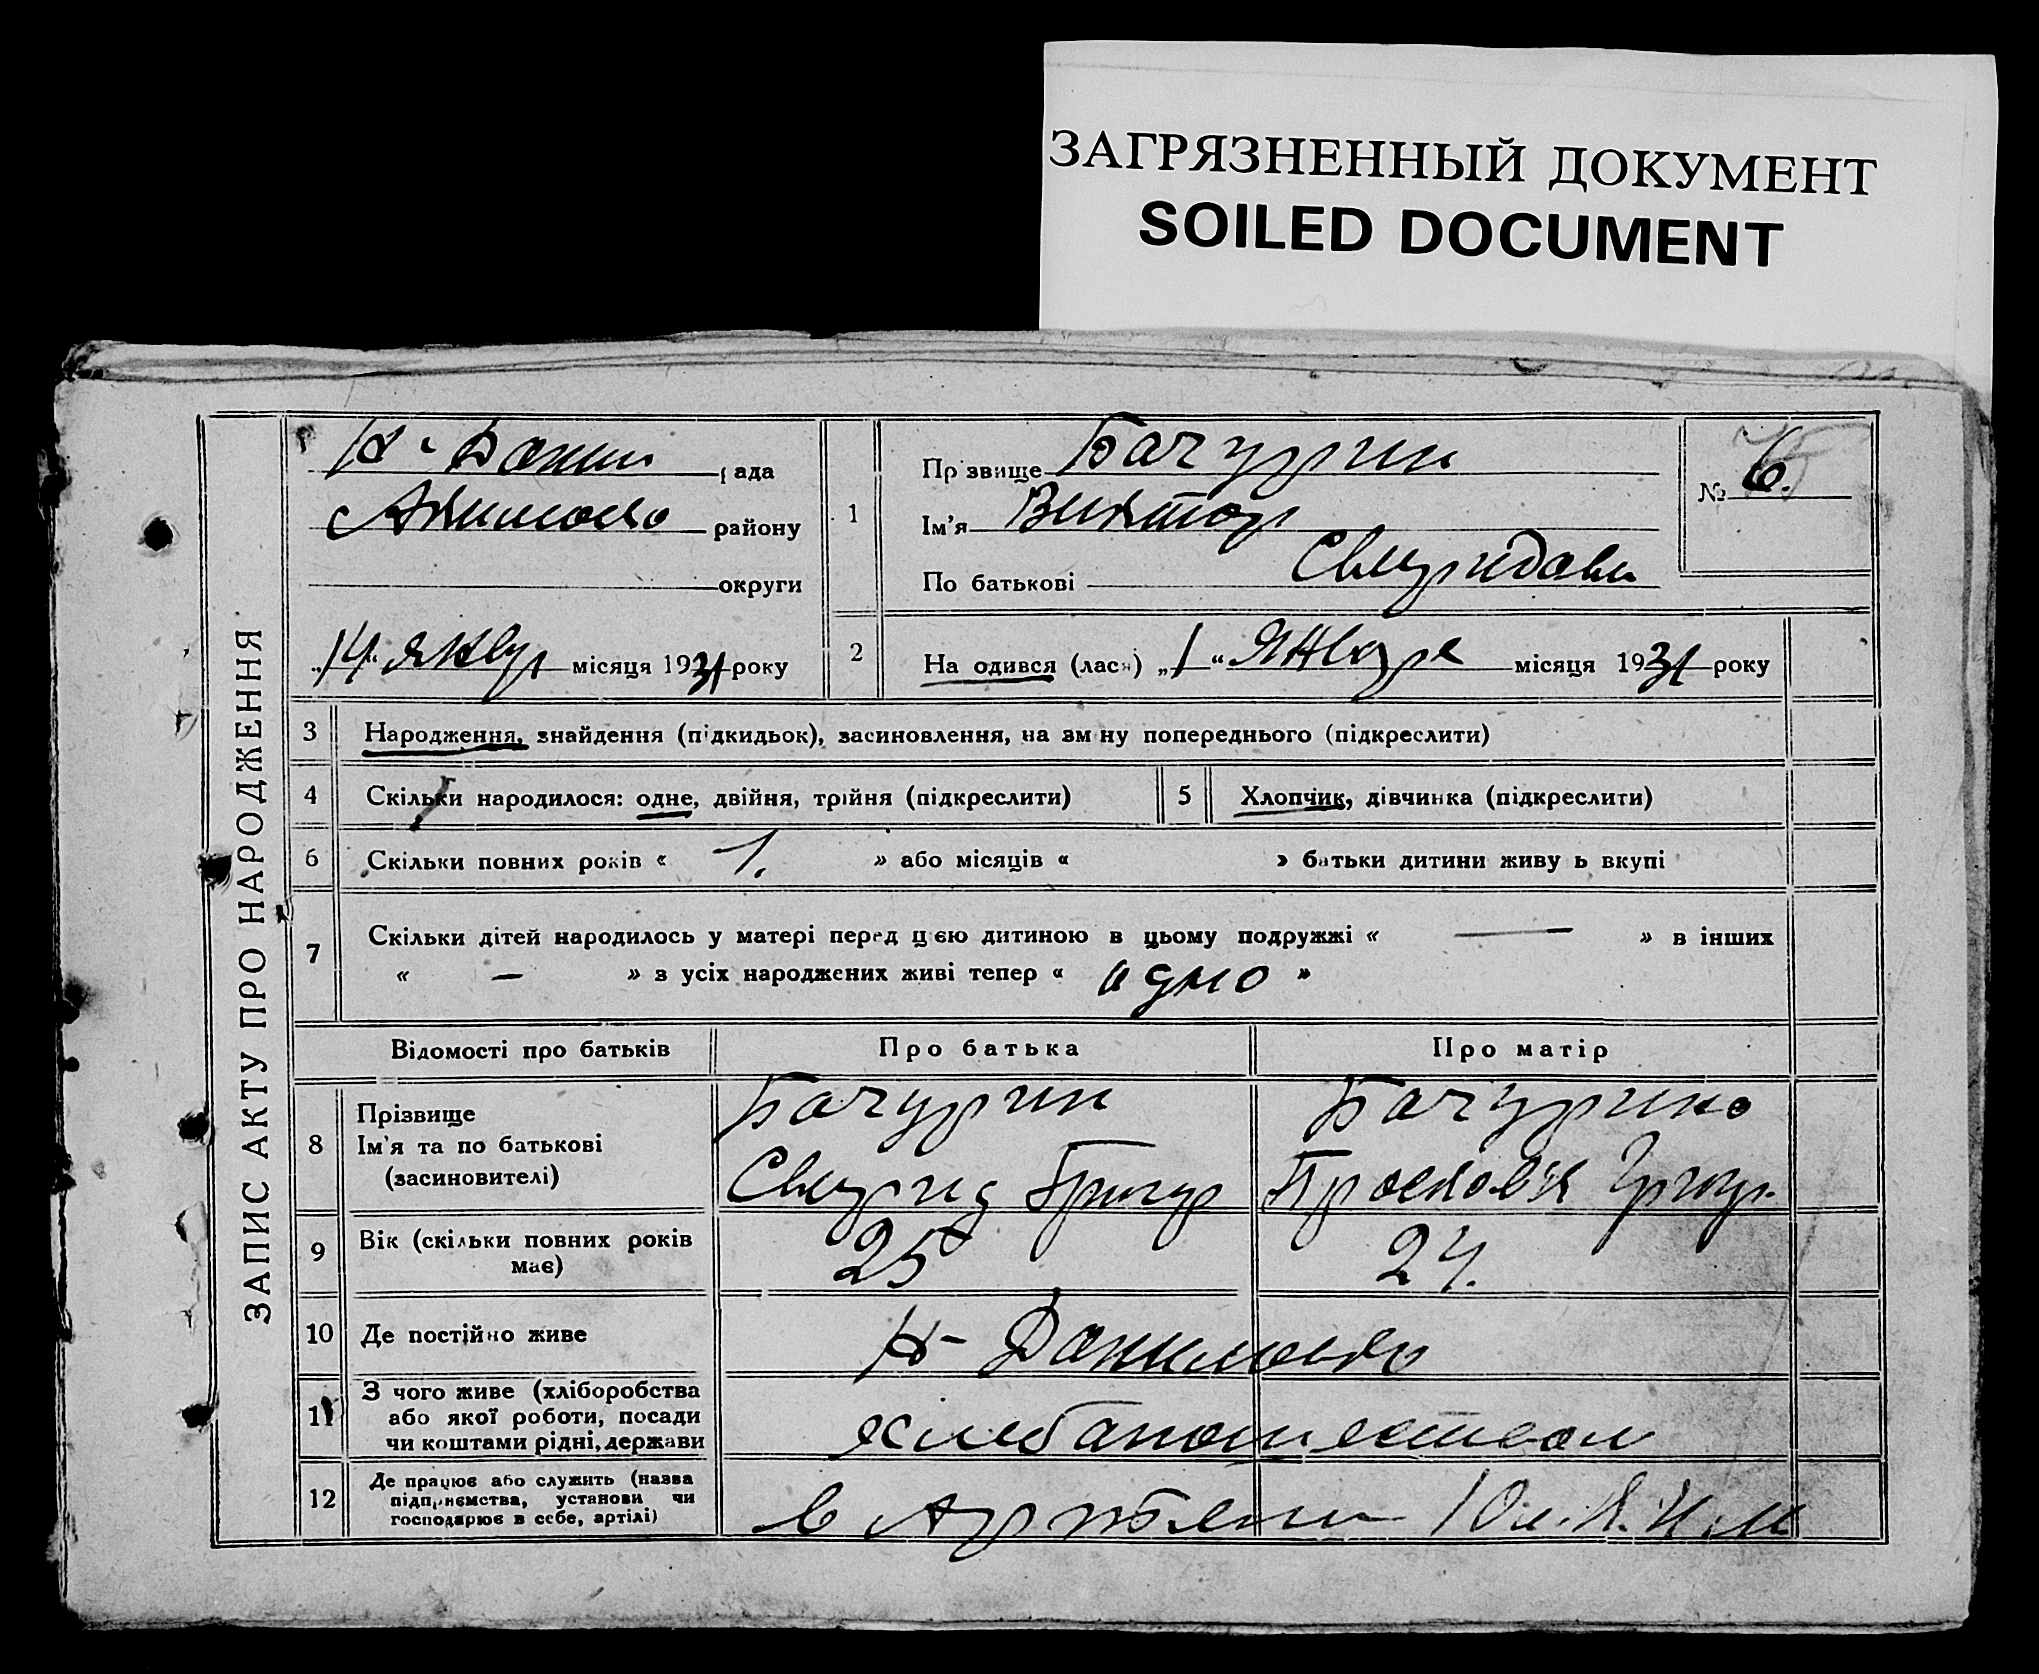 ЗАГРЯЗНЕННЫЙ ДОКУМЕНТ
SOILED DOCUMENT
ЗАПИС АКТУ ПРО НАРОДЖЕННЯ
рада
району
округи
„14“ январ місяця 1931 року
1
Прізвище Бачурин
Ім'я Виктор
По батькові Свиридови
№ 6.
2
Народився (лася) „1“ января місяця 1931 року
3 Народження, знайдення (підкидьок), засиновлення, на зміну попереднього (підкреслити)
4 Скільки народилося: одне, двійня, трійня (підкреслити)
5 Хлопчик, дівчинка (підкреслити)
6 Скільки повних років « 1. » або місяців « » батьки дитини живуть вкупі
7 Скільки дітей народилось у матері перед цією дитиною в цьому подружжі « — » в інших
« — » з усіх народжених живі тепер « одно »
Відомості про батьків Про батька Про матір
8 Прізвище
Ім'я та по батькові
(засиновителі)
Бачурин
Свирид Григор
Бачурина
Просковья Григор.
9 Вік (скільки повних років
має)
25 24.
10 Де постійно живе Н-Даниловка
11 З чого живе (хліборобства
або якої роботи, посади
чи коштами рідні, держави
хлебапашеством
12 Де працює або служить (назва
підприємства, установи чи
господарює в себе, артілі)
в Артели